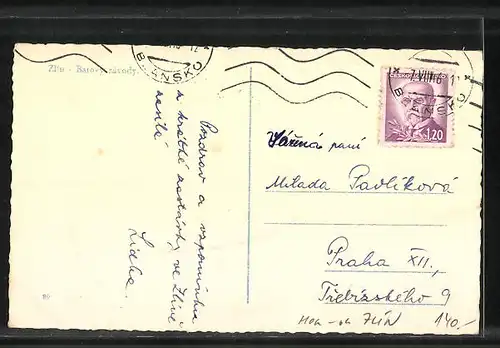 Zlín - Baťovy závody.
BLANSKO
BLANSKO
7.VIII.46
1,20
Pozdrav a vzpomínku
z krátké zastávky ve Zlíně
zasílá
Lidka.
Vážená paní
Milada Pavlíková
Praha XII.,
Třebízského 9
ZLÍN 140,-